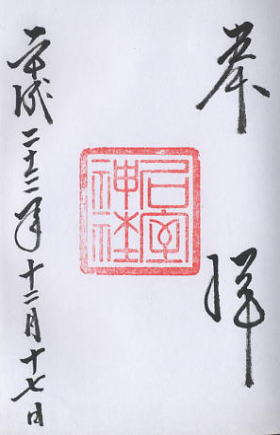 奉拝
石室
神社
平成二十二年十二月十七日